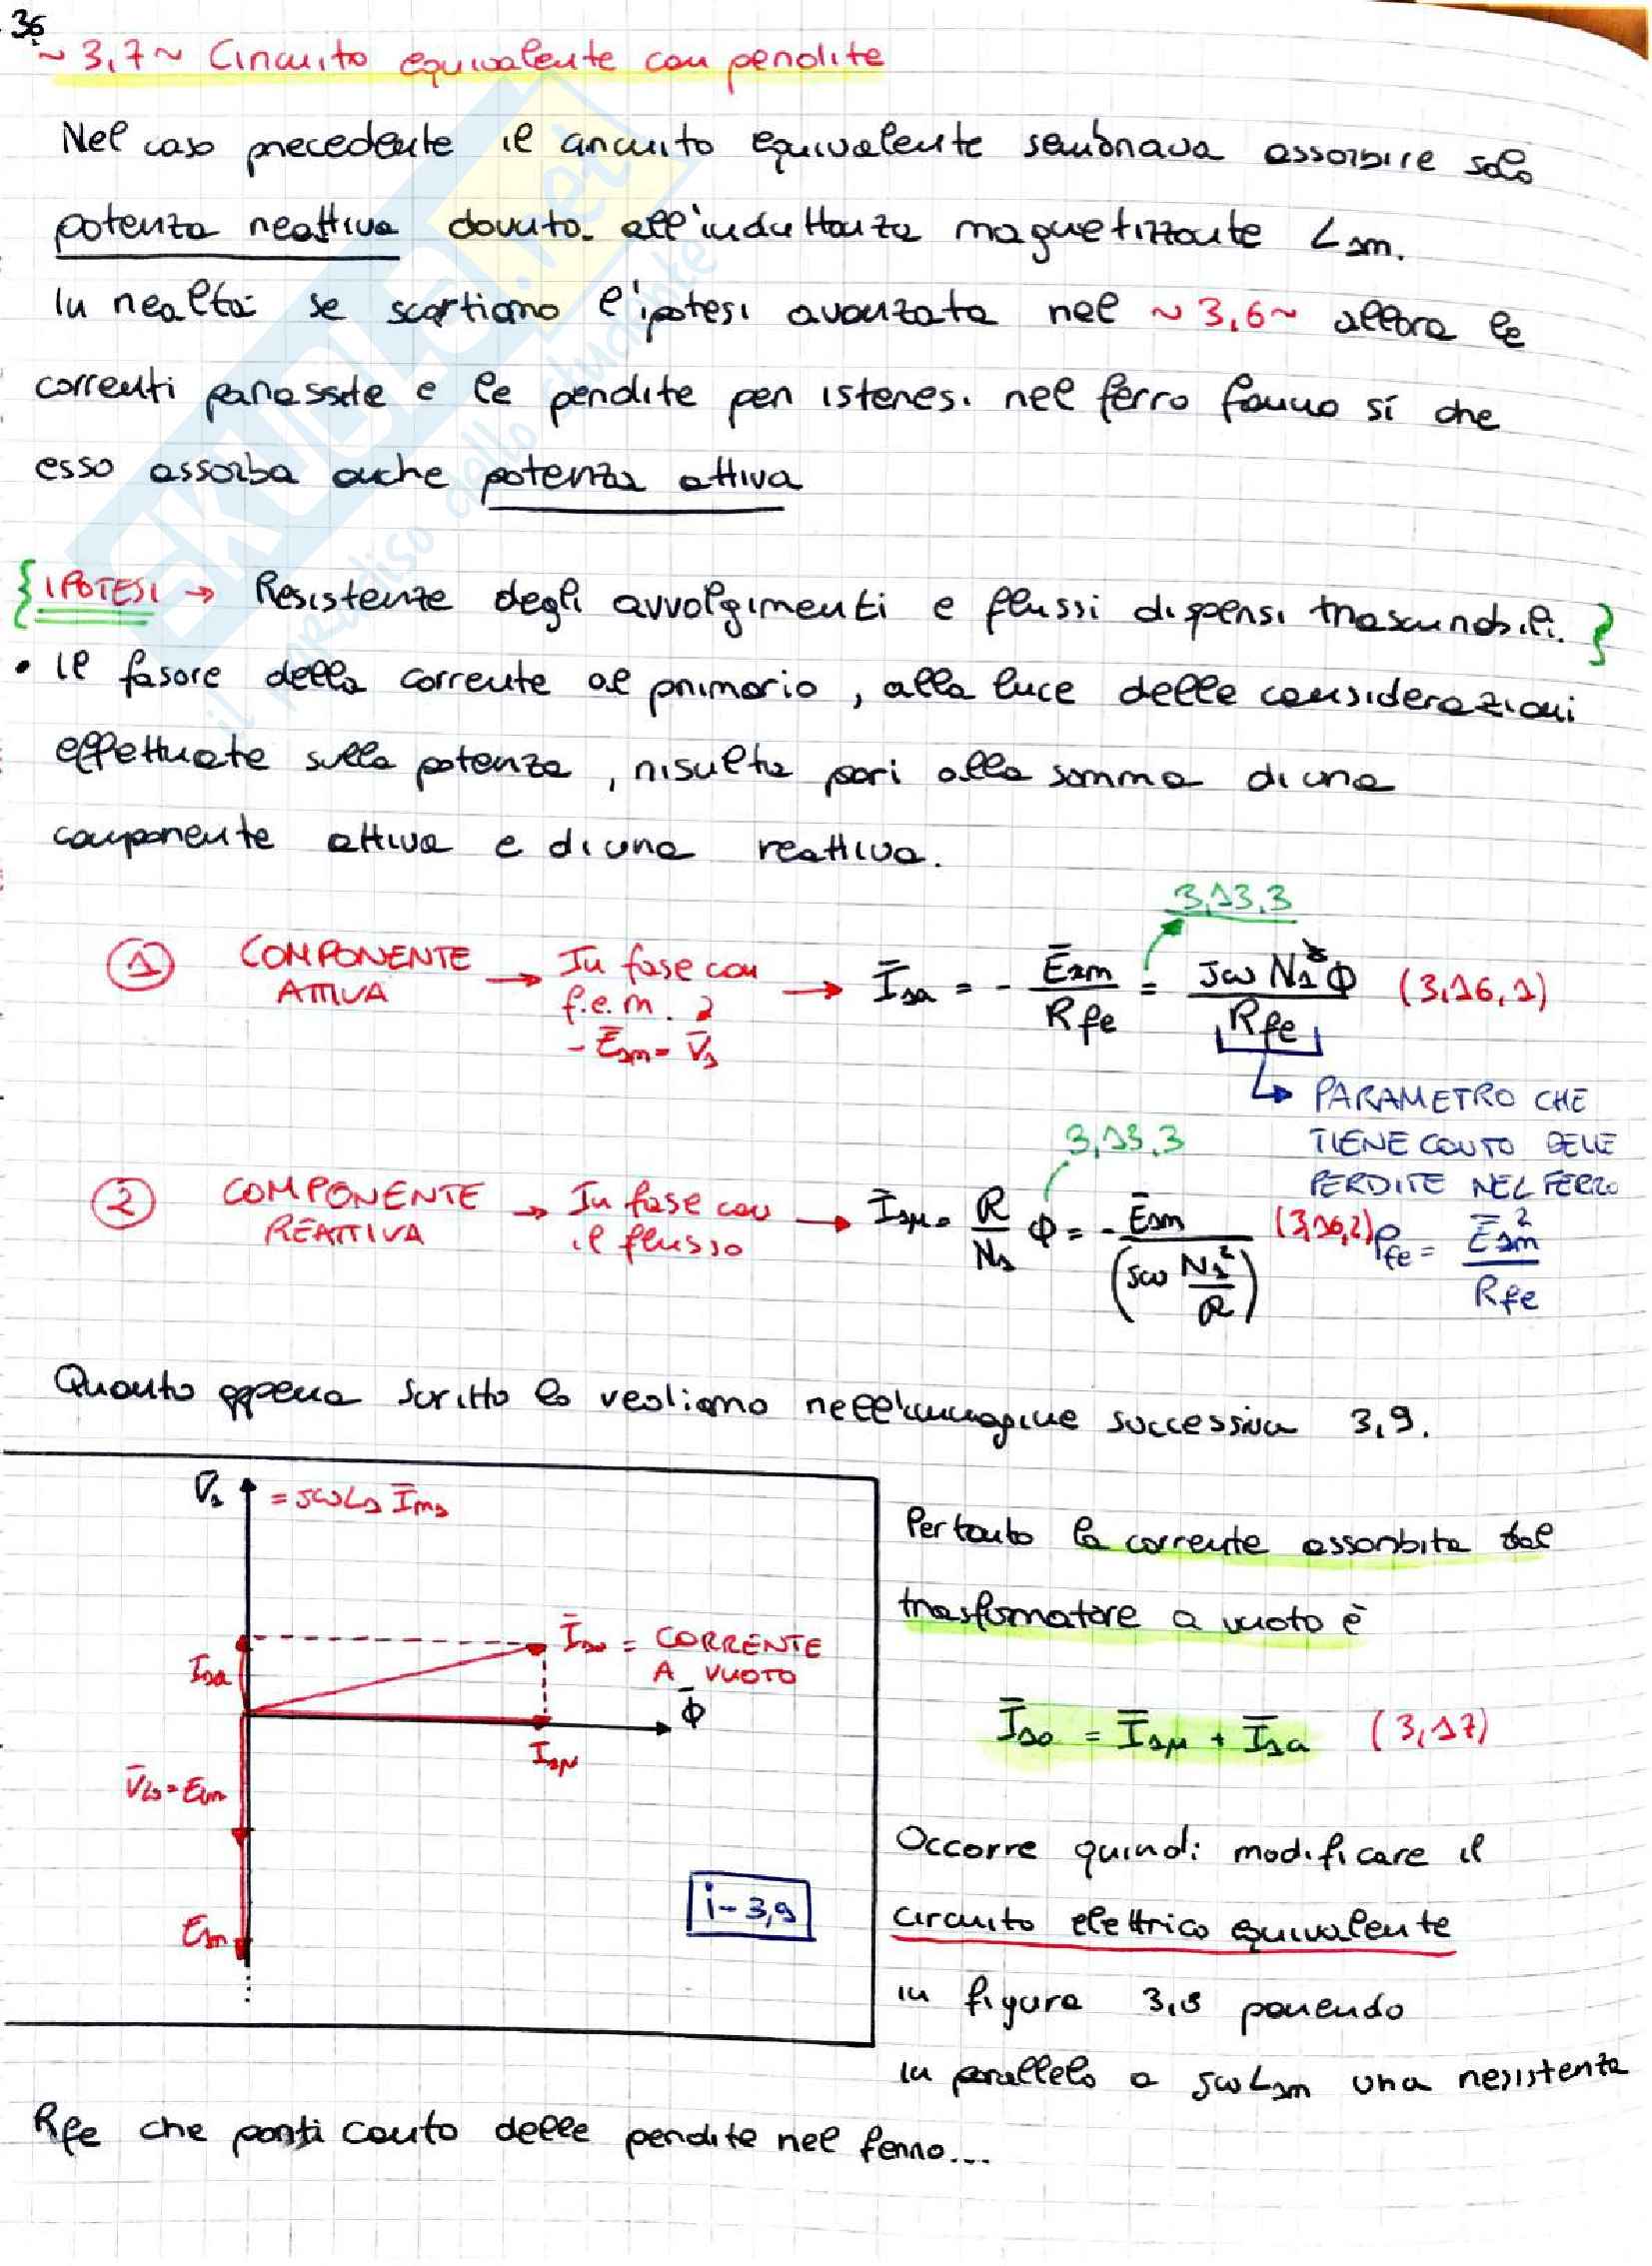 36
~ 3,7 ~ Circuito equivalente con perdite
Nel caso precedente il circuito equivalente sembrava assorbire solo
potenza reattiva dovuto all'induttanza magnetizzante L1m.
In realtà se scartiamo l'ipotesi avanzata nel ~ 3,6 ~ allora le
correnti parassite e le perdite per isteresi nel ferro fanno sì che
esso assorba anche potenza attiva
{ IPOTESI → Resistenze degli avvolgimenti e flussi dispersi trascurabili. }
• Il fasore della corrente al primario, alla luce delle considerazioni
effettuate sulla potenza, risulta pari alla somma di una
componente attiva e di una reattiva.
3,13,3
① COMPONENTE ATTIVA → In fase con f.e.m. 2 -Ē1m = V̄1 → Ī1a = - Ē1m / Rfe = jω N1 Φ / Rfe (3,16,1)
↳ PARAMETRO CHE
TIENE CONTO DELLE
PERDITE NEL FERRO
3,13,3
② COMPONENTE REATTIVA → In fase con il flusso → Ī1μ = R / N1 Φ = - Ē1m / (jω N1² / R) (3,16,2)
Pfe = Ē1m² / Rfe
Quanto appena scritto lo vediamo nell'immagine successiva 3,9.
V̄1 = jωL1 Īm1
I1a
Ī10 = CORRENTE
A VUOTO
Φ̄
I1μ
E1m
i-3,9
Pertanto la corrente assorbita dal
trasformatore a vuoto è
Ī10 = Ī1μ + Ī1a (3,17)
Occorre quindi modificare il
circuito elettrico equivalente
in figura 3,8 ponendo
in parallelo a jωL1m una resistenza
Rfe che porti conto delle perdite nel ferro...
SKUOLA.net
il paradiso dello studente